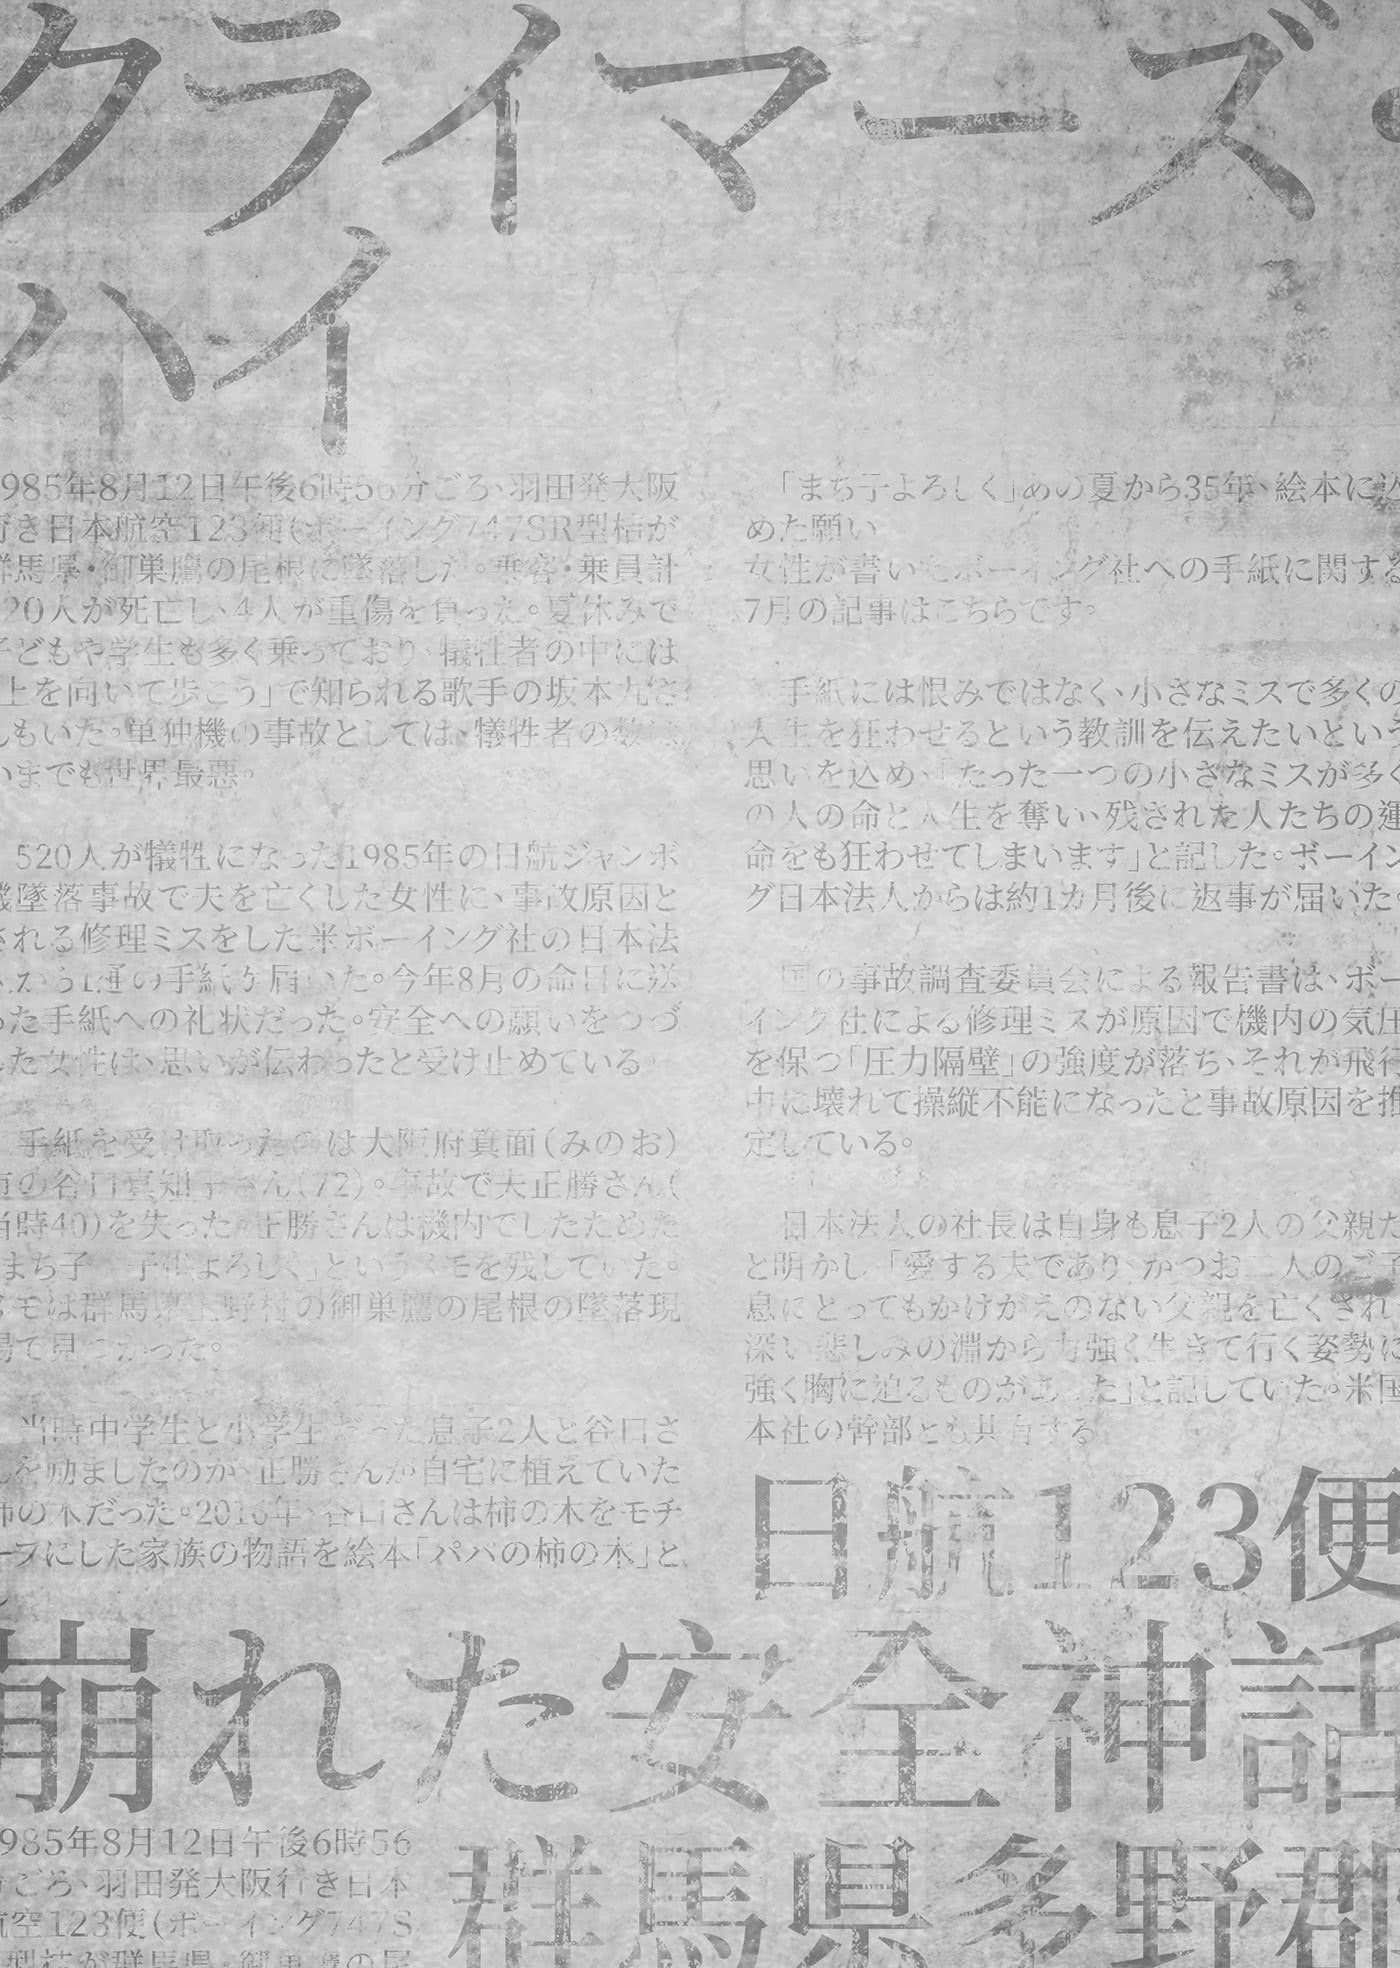 クライマーズ・
ハイ
1985年8月12日午後6時56分ごろ、羽田発大阪
行き日本航空123便（ボーイング747SR型機が
群馬県・御巣鷹の尾根に墜落した。乗客・乗員計
520人が死亡し、4人が重傷を負った。夏休みで
子どもや学生も多く乗っており、犠牲者の中には
上を向いて歩こう」で知られる歌手の坂本九さ
んもいた。単独機の事故としては、犠牲者の数は
いまでも世界最悪。
520人が犠牲になった1985年の日航ジャンボ
機墜落事故で夫を亡くした女性に、事故原因と
される修理ミスをした米ボーイング社の日本法
人から1通の手紙が届いた。今年8月の命日に送
った手紙への礼状だった。安全への願いをつづ
した女性は、思いが伝わったと受け止めている。
手紙を受け取ったのは大阪府箕面（みのお）
市の谷口真知子さん（72）。事故で夫正勝さん（
当時40）を失った。正勝さんは機内でしたためた
まち子　子供よろしく」というメモを残していた。
メモは群馬県上野村の御巣鷹の尾根の墜落現
場で見つかった。
当時中学生と小学生だった息子2人と谷口さ
んを励ましたのが、正勝さんが自宅に植えていた
柿の木だった。2016年、谷口さんは柿の木をモチ
ーフにした家族の物語を絵本「パパの柿の木」と
「まち子よろしく」あの夏から35年、絵本に込
めた願い
女性が書いたボーイング社への手紙に関する
7月の記事はこちらです。
手紙には恨みではなく、小さなミスで多くの
人生を狂わせるという教訓を伝えたいという
思いを込め、「たった一つの小さなミスが多く
の人の命と人生を奪い、残された人たちの運
命をも狂わせてしまいます」と記した。ボーイン
グ日本法人からは約1カ月後に返事が届いた。
国の事故調査委員会による報告書は、ボー
イング社による修理ミスが原因で機内の気圧
を保つ「圧力隔壁」の強度が落ち、それが飛行
中に壊れて操縦不能になったと事故原因を推
定している。
日本法人の社長は自身も息子2人の父親だ
と明かし、「愛する夫であり、かつお二人のご子
息にとってもかけがえのない父親を亡くされ、
深い悲しみの淵から力強く生きて行く姿勢に
強く胸に迫るものがあった」と記していた。米国
本社の幹部とも共有する
日航123便
崩れた安全神話
1985年8月12日午後6時56
分ごろ、羽田発大阪行き日本
航空123便（ボーイング747S
型機が群馬県・御巣鷹の尾
群馬県多野郡